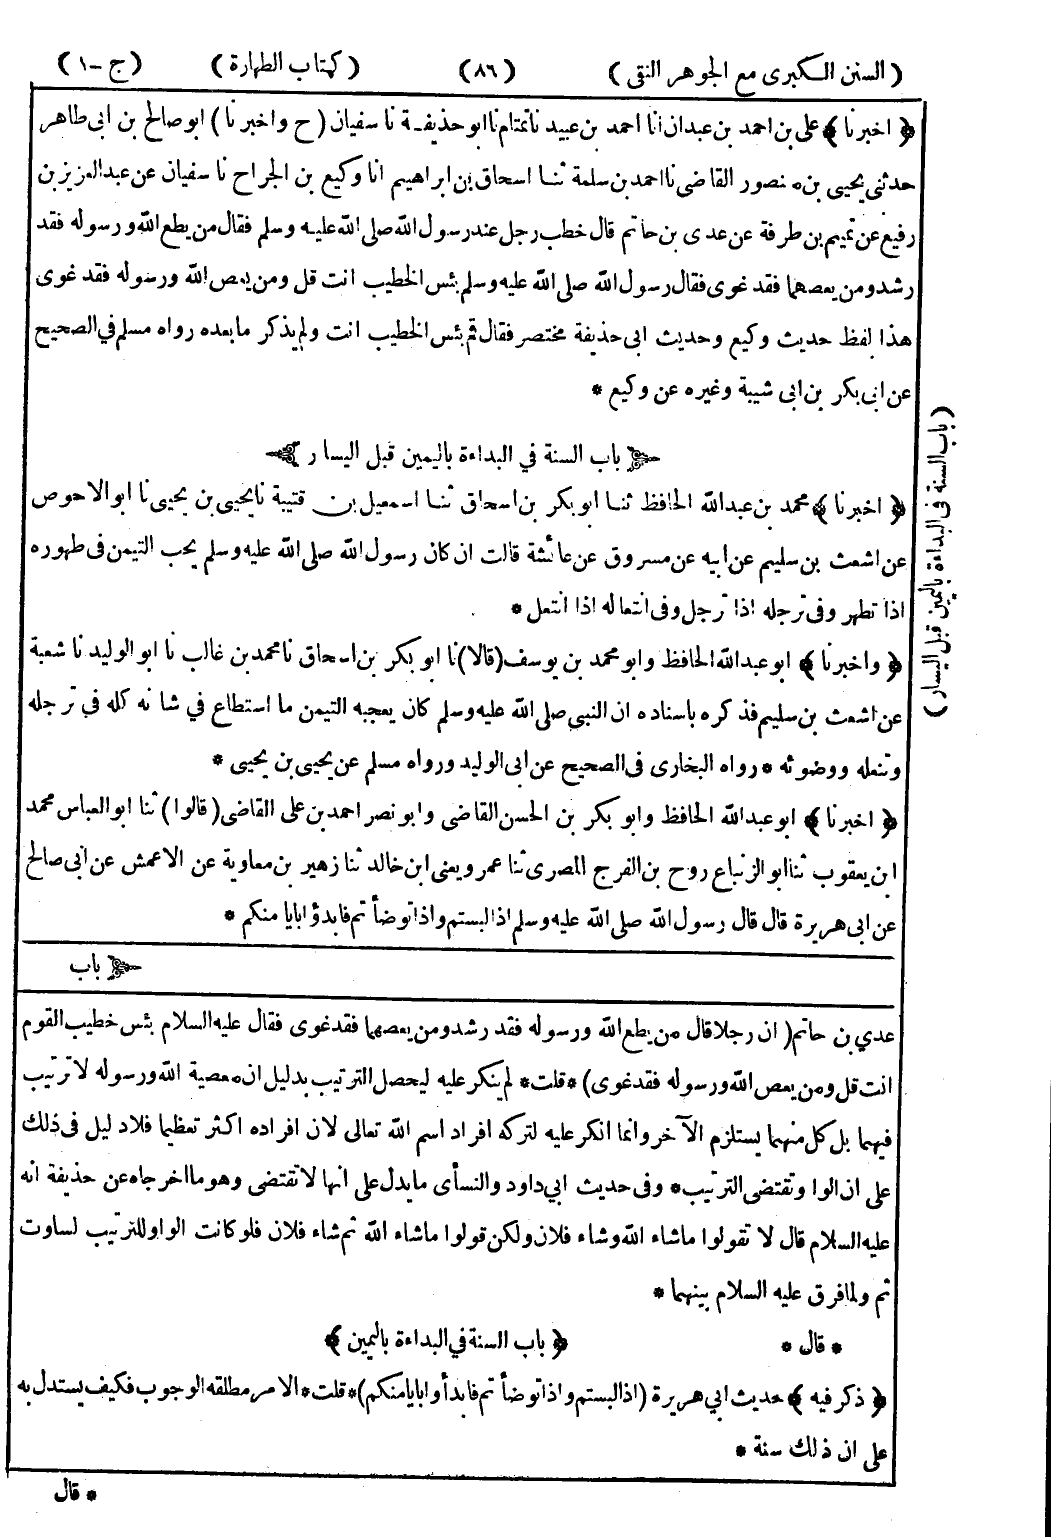 ( السنن الكبرى مع الجوهر النقى ) (٨٦) ( كتاب الطهارة ) ( ج -١ )
﴿ اخبرنا ﴾ على بن احمد بن عبدان انا احمد بن عبيد نا تمتام نا ابو حذيفة نا سفيان ( ح واخبرنا ) ابو صالح بن ابى طاهر
حدثنى يحيى بن منصور القاضى نا احمد بن سلمة ثنا اسحاق بن ابراهيم انا وكيع بن الجراح نا سفيان عن عبد العزيز بن
رفيع عن تميم بن طرفة عن عدى بن حاتم قال خطب رجل عند رسول الله صلى الله عليه وسلم فقال من يطع الله ورسوله فقد
رشد ومن يعصهما فقد غوى فقال رسول الله صلى الله عليه وسلم بئس الخطيب انت قل ومن يعص الله ورسوله فقد غوى
هذا لفظ حديث وكيع وحديث ابى حذيفة مختصر فقال قم بئس الخطيب انت ولم يذكر ما بعده رواه مسلم فى الصحيح
عن ابى بكر بن ابى شيبة وغيره عن وكيع *
باب السنة في البداءة باليمين قبل اليسار
﴿ اخبرنا ﴾ محمد بن عبدالله الحافظ ثنا ابو بكر بن اسحاق ثنا اسمعيل بن قتيبة نا يحيى بن يحيى نا ابو الاحوص
عن اشعث بن سليم عن ابيه عن مسروق عن عائشة قالت ان كان رسول الله صلى الله عليه وسلم يحب التيمن فى طهوره
اذا تطهر وفى ترجله اذا ترجل وفى انتعاله اذا انتعل *
﴿ واخبرنا ﴾ ابو عبد الله الحافظ وابو محمد بن يوسف (قالا) نا ابو بكر بن اسحاق نا محمد بن غالب نا ابو الوليد نا شعبة
عن اشعث بن سليم فذكره باسناده ان النبى صلى الله عليه وسلم كان يعجبه التيمن ما استطاع في شانه كله في ترجله
وتنعله ووضوئه * رواه البخارى فى الصحيح عن ابى الوليد ورواه مسلم عن يحيى بن يحيى *
﴿ اخبرنا ﴾ ابو عبد الله الحافظ وابو بكر بن الحسن القاضى وابو نصر احمد بن على القاضى ( قالوا ) ثنا ابو العباس محمد
ابن يعقوب ثنا ابو الزنباع روح بن الفرج المصرى ثنا عمرو يعنى ابن خالد ثنا زهير بن معاوية عن الاعمش عن ابى صالح
عن ابى هريرة قال قال رسول الله صلى الله عليه وسلم اذا لبستم واذا توضأتم فابدؤا بايامنكم *
باب
( باب السنة فى البداءة باليمين قبل اليسار )
عدي بن حاتم ( ان رجلا قال من يطع الله ورسوله فقد رشد ومن يعصهما فقد غوى فقال عليه السلام بئس خطيب القوم
انت قل ومن يعص الله ورسوله فقد غوى) * قلت * لم ينكر عليه ليحصل الترتيب بدليل ان معصية الله ورسوله لا ترتيب
فيهما بل كل منهما يستلزم الآخر وانما انكر عليه لتركه افراد اسم الله تعالى لان افراده اكثر تعظيما فلا دليل فى ذلك
على ان الواو تقتضى الترتيب * وفى حديث ابي داود والنسأى ما يدل على انها لا تقتضى وهو ما اخرجاه عن حذيفة انه
عليه السلام قال لا تقولوا ماشاء الله وشاء فلان ولكن قولوا ماشاء الله ثم شاء فلان فلو كانت الواو للترتيب لساوت
ثم ولما فرق عليه السلام بينهما *
* قال * ﴿ باب السنة في البداءة باليمين ﴾
﴿ ذكر فيه ﴾ حديث ابي هريرة ( اذا لبستم واذا توضأتم فابدأوا بايامنكم ) * قلت * الامر مطلقه الوجوب فكيف يستدل به
على ان ذلك سنة *
* قال